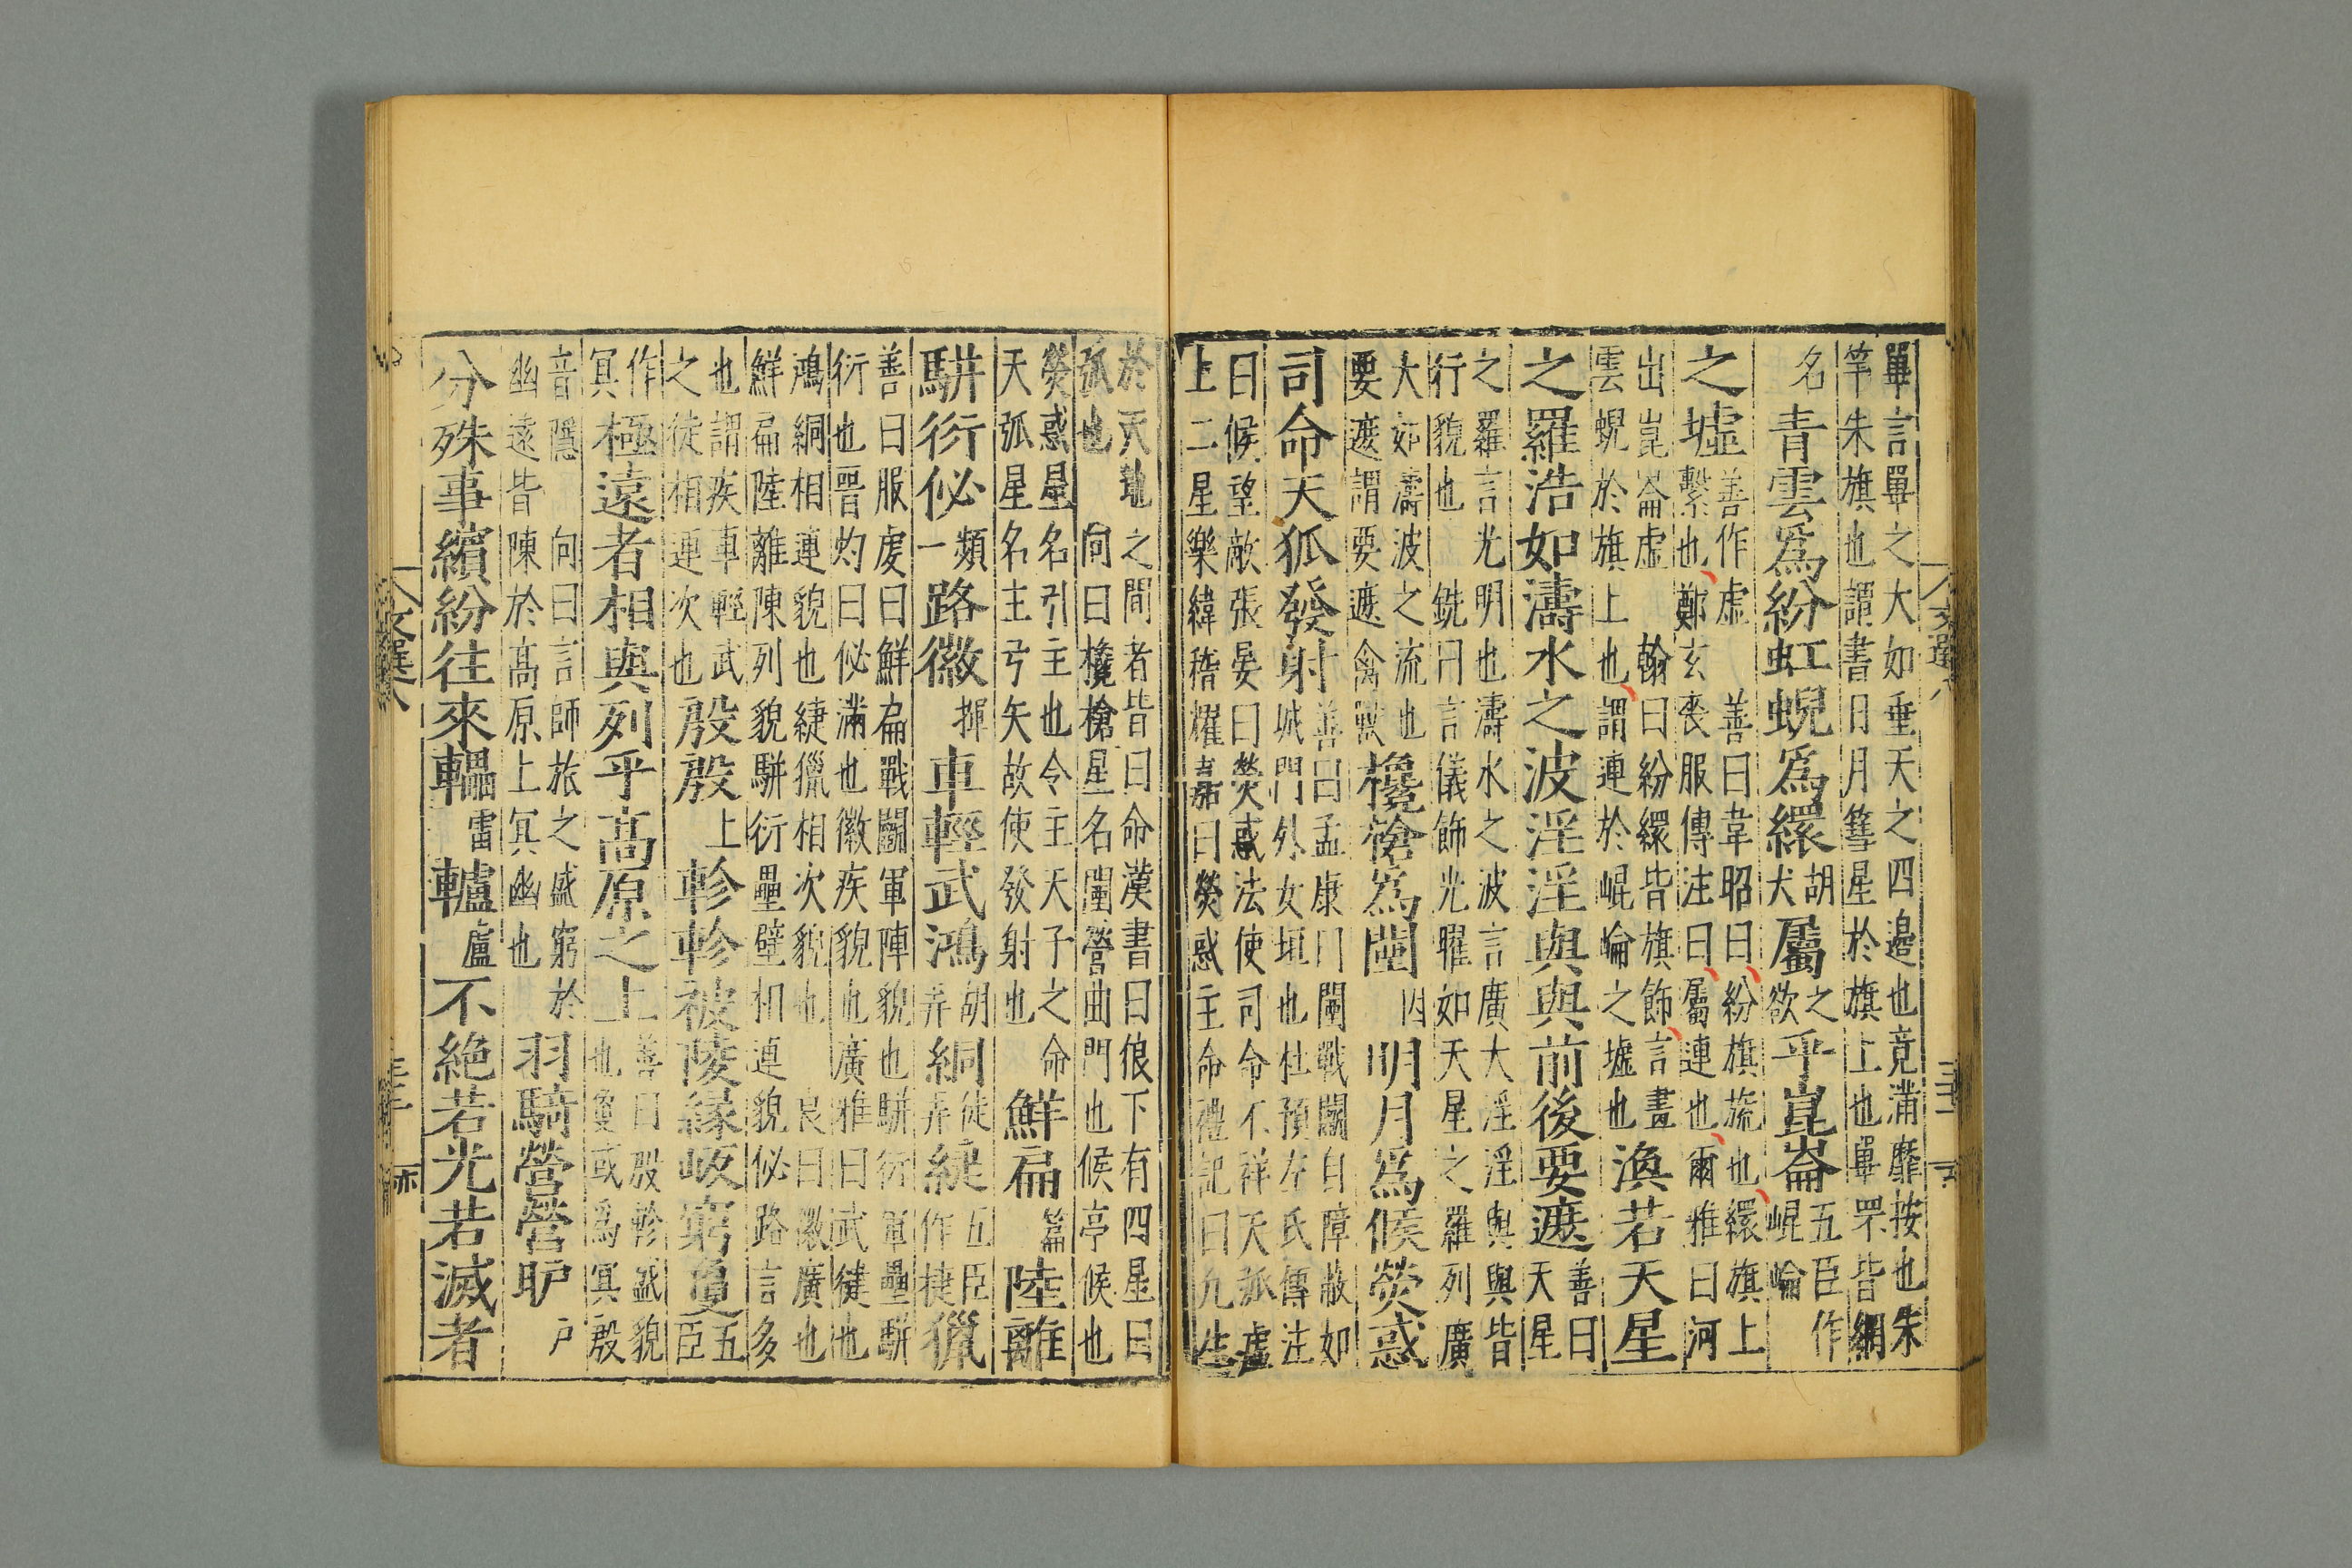 畢言畢之大如垂天之四邊也竟滿靡按也朱
竿朱旗也謂書日月篲星於旗上也畢罘皆網
名青雲爲紛虹蜺爲繯胡犬屬之欲乎崑崙五臣作崐崘
之墟善作虛 善曰韋昭曰紛旗旒也繯旗上
繫也鄭玄喪服傳注曰屬連也爾雅曰河
出崑崙虛 翰曰紛繯皆旗飾言畫
雲蜺於旗上也謂連於崐崘之墟也渙若天星
之羅浩如濤水之波淫淫與與前後要遮善曰天星
之羅言光明也濤水之波言廣大淫淫與與皆
行貌也 銑曰言儀飾光曜如天星之羅列廣
大如濤波之流也
要遮謂要遮禽獸欃槍爲闉因明月爲候熒惑
司命天狐發射善曰孟康曰闉戰鬭自障蔽如
城門外女垣也杜預左氏傳注
曰候望敵張晏曰熒惑法使司命不祥天狐虛
上二星樂緯稽耀嘉曰熒惑主命禮記曰九生
文選八
於天地之間者皆曰命漢書曰俍下有四星曰
狐也 向曰欃槍星名闉營曲門也候亭候也
熒惑星名引主也令主天子之命
天弧星名主弓矢故使發射也鮮扁篇陸離
駢衍佖頻一路徽揮車輕武鴻胡弄絧徒弄緁五臣作捷獵
善曰服虔曰鮮扁戰鬭軍陣貌也駢衍軍壘駢
衍也晉灼曰佖滿也徽疾貌也廣雅曰武徤也
鴻絧相連貌也緁獵相次貌也 良曰徽廣也
鮮扁陸離陳列貌駢衍壘壁相連貌佖路言多
也謂疾車輕武
之徒相連次也殷殷上軫軫被陵緣岅窮敻五臣
作冥極遠者相與列乎高原之上善曰殷軫盛貌
也敻或爲冥殷
音隱 向曰言師旅之盛窮於
幽遠皆陳於高原上冥幽也羽騎營營昈户
分殊事繽紛往來轠雷轤盧不絕若光若滅者
文選八